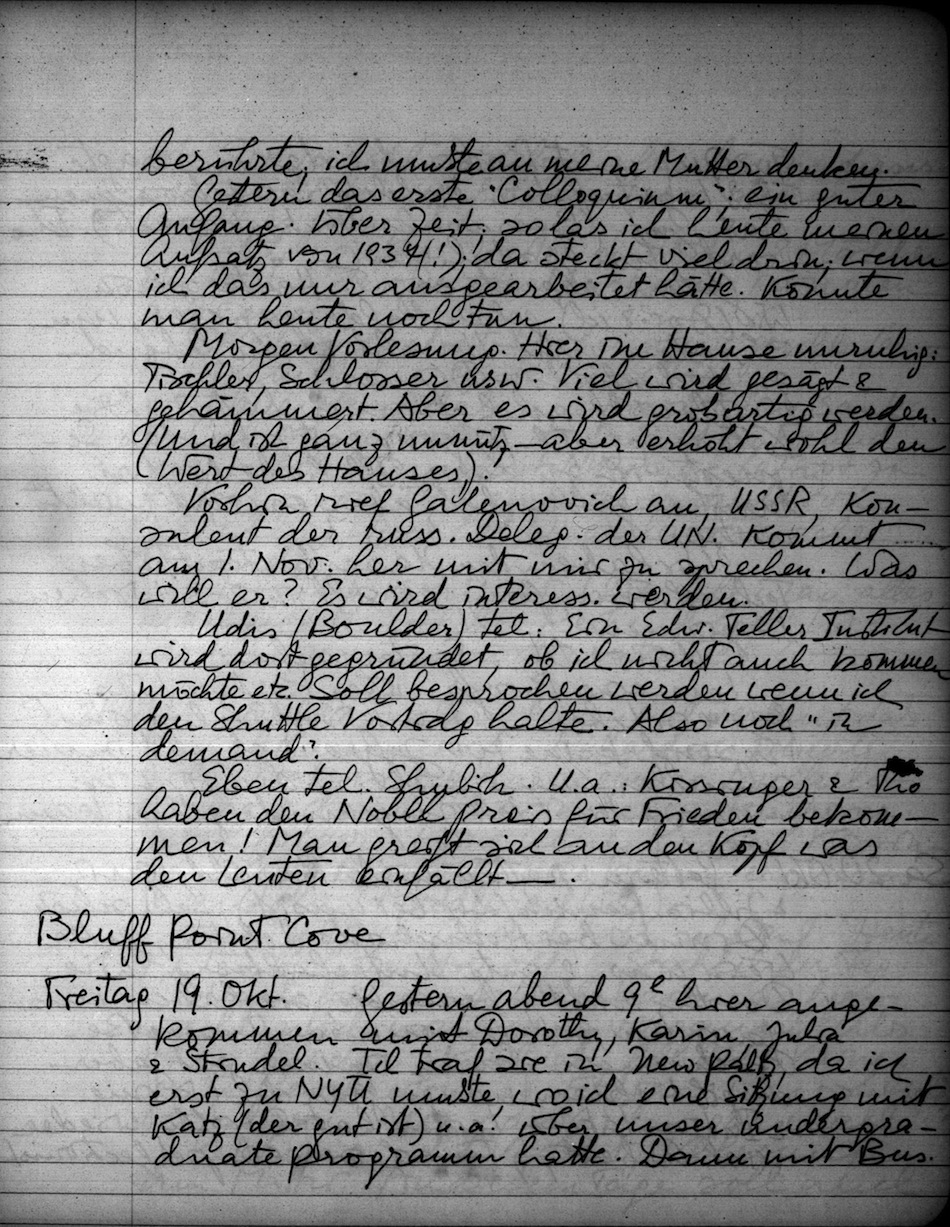 berührte; ich musste an meine Mutter denken.
Gestern das erste "Colloquium"; ein guter
Anfang. Über Zeit; so las ich heute meinen
Aufsatz von 1934(!); da steckt viel drin; wenn
ich das nur ausgearbeitet hätte. Könnte
man heute noch tun.
Morgen Vorlesung. Hier im Hause unruhig:
Tischler, Schlosser usw. Viel wird gesägt &
gehämmert. Aber es wird großartig werden.
(Und ist ganz unnütz – aber erhöht wohl den
Wert des Hauses)!
Vorhin rief Galenovich an, USSR, Kon-
sulent der russ. Deleg. der UN. Kommt
am 1. Nov. her mit mir zu sprechen. Was
will er? Es wird interess. werden.
Udis (Boulder) tel: Ein Edw. Teller Institut
wird dort gegründet, ob ich nicht auch kommen
möchte etc. Soll besprochen werden wenn ich
den Shuttle Vortrag halte. Also noch "in
demand".
Eben tel. Shubik. U.a.: Kissinger & Tho
haben den Nobel Preis für Frieden bekom-
men! Man greift sich an den Kopf was
den Leuten einfällt —.
Bluff Point Cove
Freitag 19. Okt. Gestern abend 9h hier ange-
kommen mit Dorothy, Karin, Julia
& Strudel. Ich traf sie in New Paltz, da ich
erst zu NYU musste, wo ich eine Sitzung mit
Katz (der gut ist) u.a. über unser undergra-
duate programm hatte. Dann mit Bus.